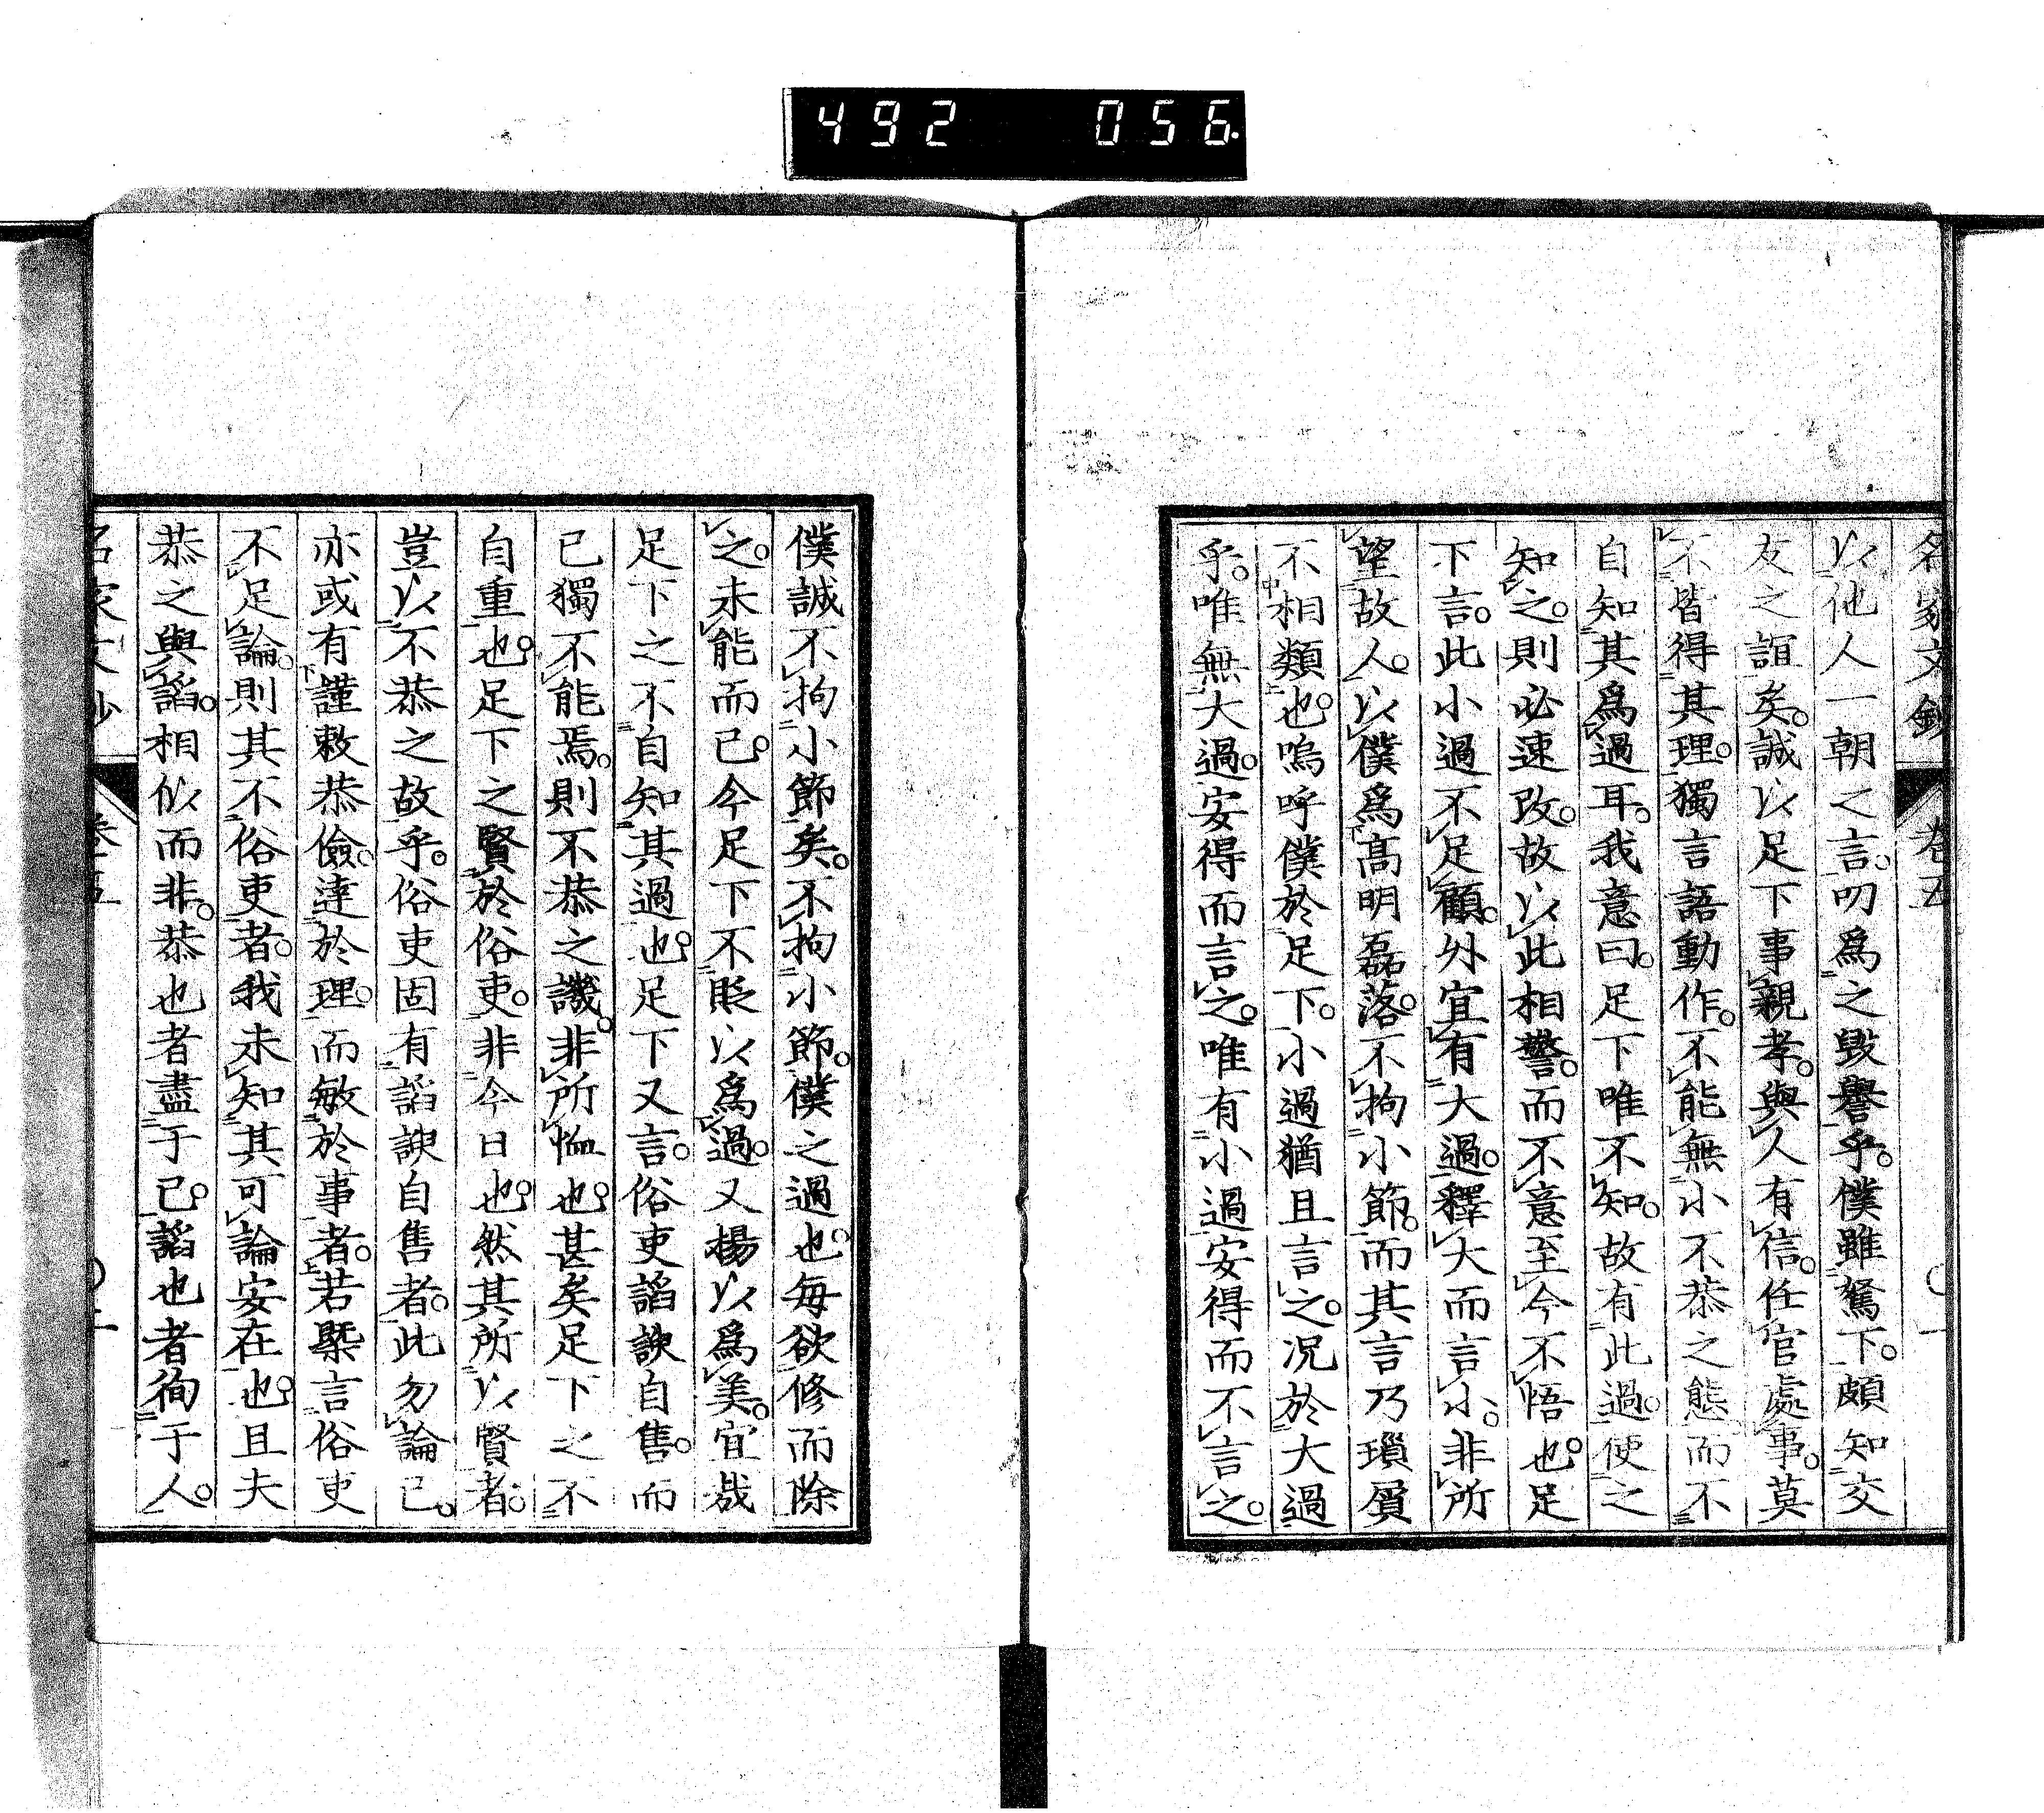 492 056
名家文鈔 卷五 〇 一
以他人一朝之言。叨爲之毀譽乎。僕雖駑下。頗知交
友之誼矣。誠以足下事親孝。與人有信。任官處事。莫
不皆得其理。獨言語動作。不能無小不恭之態。而不
自知其爲過耳。我意曰。足下唯不知。故有此過。使之
知之。則必速改。故以此相警。而不意至今不悟也。足
下言。此小過不足顧。外宜有大過。釋大而言小。非所
望故人。以僕爲高明磊落。不拘小節。而其言乃瑣屑
不相類也。嗚呼僕於足下。小過猶且言之。況於大過
乎。唯無大過。安得而言之。唯有小過。安得而不言之。
僕誠不拘小節矣。不拘小節。僕之過也。每欲修而除
之。未能而已。今足下不貶以爲過。又揚以爲美。宜哉
足下之不自知其過也。足下又言。俗吏諂諛自售。而
己獨不能焉。則不恭之譏。非所恤也。甚矣足下之不
自重也。足下之賢於俗吏。非今日也。然其所以賢者。
豈以不恭之故乎。俗吏固有諂諛自售者。此勿論已。
亦或有謹敕恭儉。達於理。而敏於事者。若槩言俗吏
不足論。則其不俗吏者。我未知其可論安在也。且夫
恭之與諂。相似而非。恭也者盡于己。諂也者徇于人。
名家文鈔 卷五